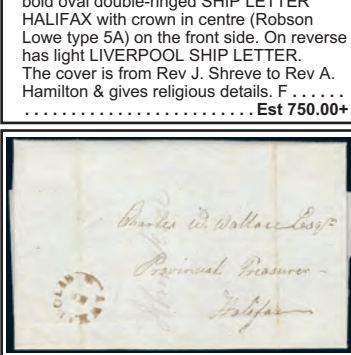 bold oval double-ringed SHIP LETTER
HALIFAX with crown in centre (Robson
Lowe type 5A) on the front side. On reverse
has light LIVERPOOL SHIP LETTER.
The cover is from Rev J. Shreve to Rev A.
Hamilton & gives religious details. F . . . . . .
. . . . . . . . . . . . . . . . . . . . . . . . . Est 750.00+
Charles W. Wallace Esqr
Provincial Treasurer -
Halifax